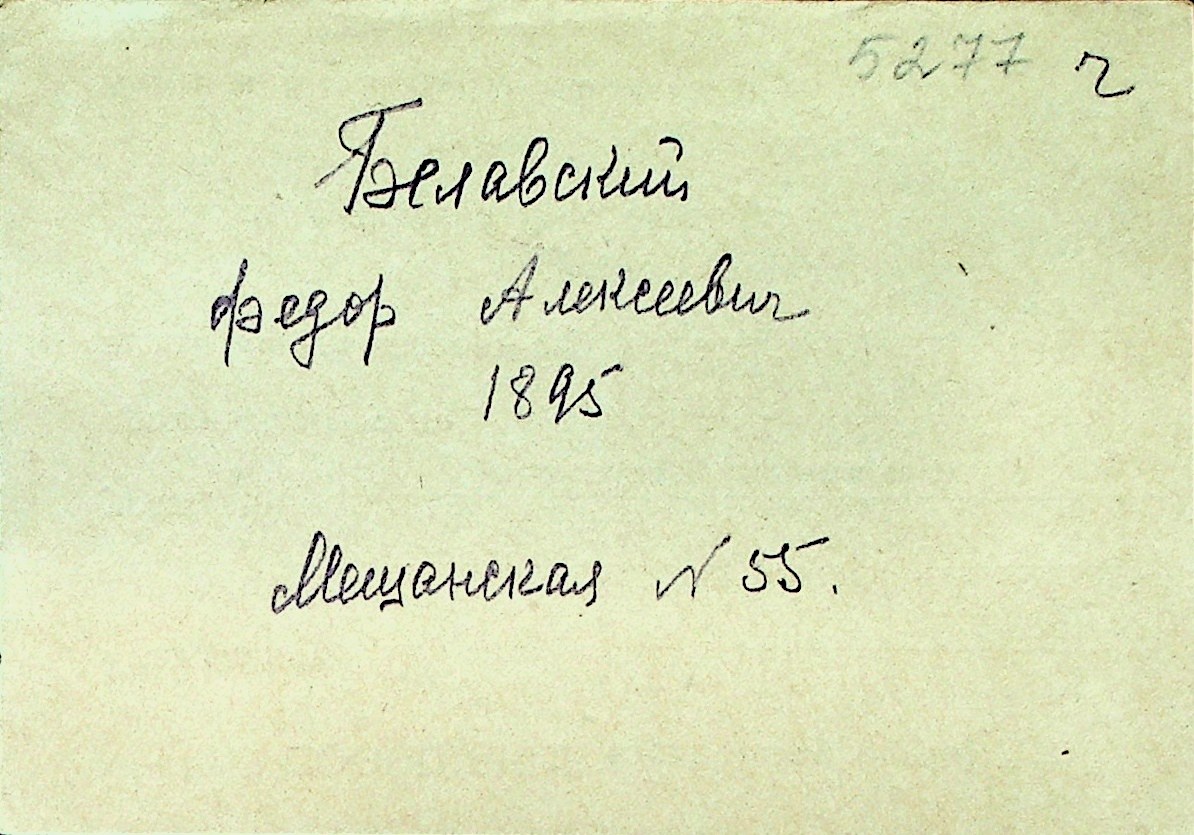 5277 ч
Белавский
Федор Алексеевич
1895
Мещанская N 55.